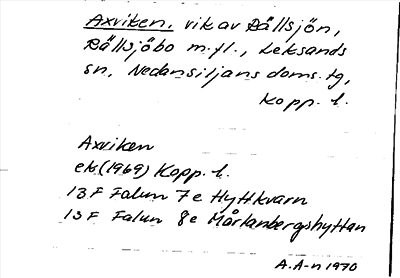 Axviken, vik av Rällsjön,
Rällsjöbo m.fl., Leksands
sn, Nedansiljans doms. tg,
Kopp. l.
Axviken
ek.(1969) Kopp. l.
13 F Falun 7 e Hyttkvarn
13 F Falun 8 e Mårtanbergshyttan
A.A-n 1970